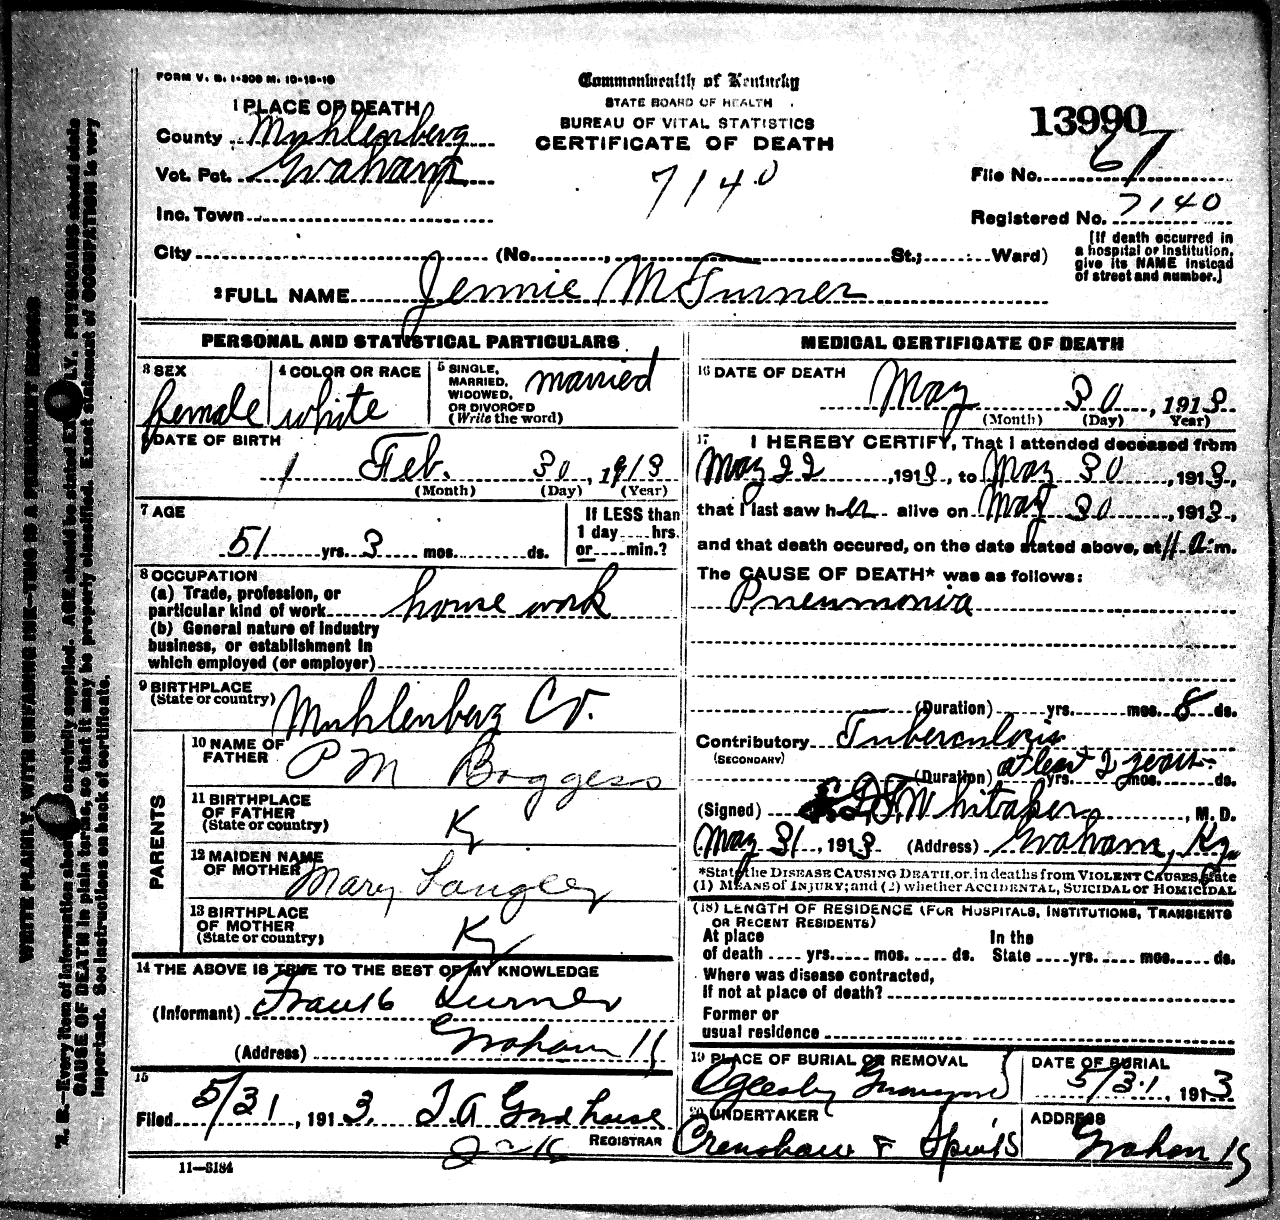 FORM V. S. 1-300 M. 10-18-10
Commonwealth of Kentucky
STATE BOARD OF HEALTH
BUREAU OF VITAL STATISTICS
CERTIFICATE OF DEATH
13990
1 PLACE OF DEATH
County Muhlenberg
Vot. Pct. Graham
Inc. Town
City (No. , St.; Ward)
7140
File No. 67
Registered No. 7140
[If death occurred in
a hospital or institution,
give its NAME instead
of street and number.]
2 FULL NAME Jennie M Turner
PERSONAL AND STATISTICAL PARTICULARS
3 SEX
female
4 COLOR OR RACE
white
5 SINGLE,
MARRIED,
WIDOWED,
OR DIVORCED
(Write the word)
married
6 DATE OF BIRTH
Feb. 30, 1913
(Month) (Day) (Year)
7 AGE
51 yrs. 3 mos. ds.
If LESS than
1 day hrs.
or min.?
8 OCCUPATION
(a) Trade, profession, or
particular kind of work house work
(b) General nature of industry
business, or establishment in
which employed (or employer)
9 BIRTHPLACE
(State or country) Muhlenberg Co.
PARENTS
10 NAME OF
FATHER P M Boggess
11 BIRTHPLACE
OF FATHER
(State or country) Ky
12 MAIDEN NAME
OF MOTHER Mary Langley
13 BIRTHPLACE
OF MOTHER
(State or country) Ky
14 THE ABOVE IS TRUE TO THE BEST OF MY KNOWLEDGE
(Informant) Frank Turner
(Address) Graham Ky
15
Filed 5/31, 1913. J A Goodhouse
REGISTRAR
11-3184
MEDICAL CERTIFICATE OF DEATH
16 DATE OF DEATH
May 30, 1913
(Month) (Day) Year)
17 I HEREBY CERTIFY, That I attended deceased from
May 22, 1913, to May 30, 1913,
that I last saw her alive on May 30, 1913,
and that death occured, on the date stated above, at 11 a.m.
The CAUSE OF DEATH* was as follows:
Pneumonia
(Duration) yrs. mos. 8 ds.
Contributory Tuberculosis
(SECONDARY)
(Duration) at least 2 years yrs. mos. ds.
(Signed) Whitaker, M. D.
May 31, 1913 (Address) Graham, Ky
*State the DISEASE CAUSING DEATH, or, in deaths from VIOLENT CAUSES, state
(1) MEANS OF INJURY; and (2) whether ACCIDENTAL, SUICIDAL or HOMICIDAL
(18) LENGTH OF RESIDENCE (FOR HOSPITALS, INSTITUTIONS, TRANSIENTS
OR RECENT RESIDENTS)
At place In the
of death yrs. mos. ds. State yrs. mos. ds.
Where was disease contracted,
If not at place of death?
Former or
usual residence
19 PLACE OF BURIAL OR REMOVAL
Oglesby
DATE OF BURIAL
5/31, 1913
20 UNDERTAKER
Crenshaw &
ADDRESS
Graham Ky
WRITE PLAINLY, WITH UNFADING INK—THIS IS A PERMANENT RECORD
N. B.—Every item of information should be carefully supplied. AGE should be stated EXACTLY. PHYSICIANS should state
CAUSE OF DEATH in plain terms, so that it may be properly classified. Exact statement of OCCUPATION is very
important. See instructions on back of certificate.